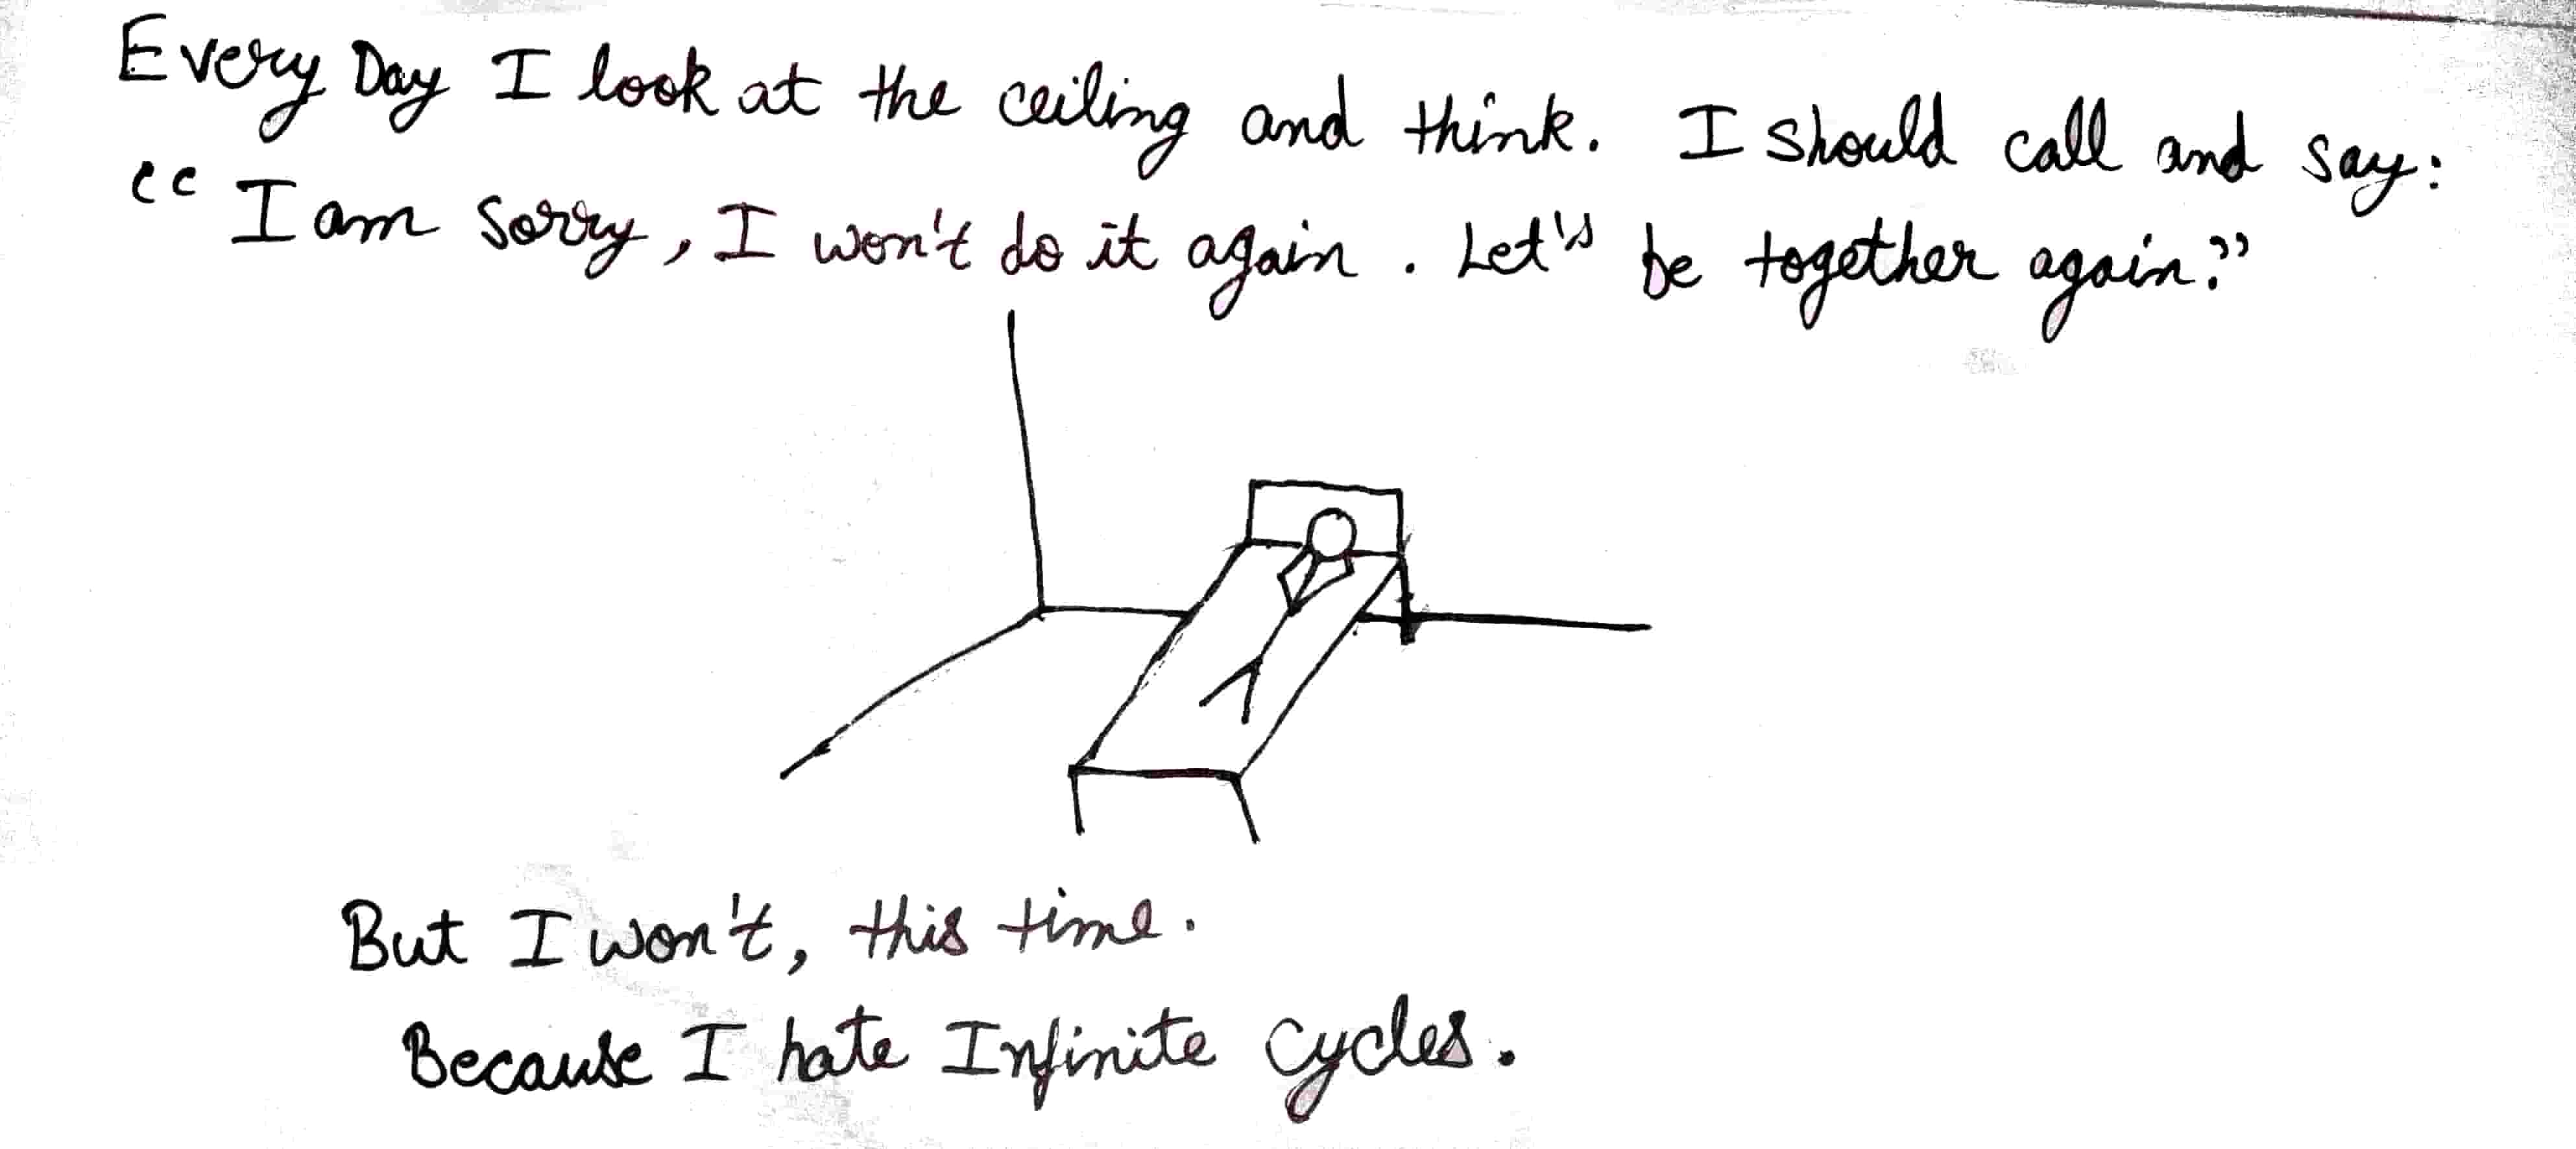 Every Day I look at the ceiling and think. I should call and say:
“I am sorry, I won't do it again. Let's be together again?”
But I won't, this time.
Because I hate Infinite cycles.